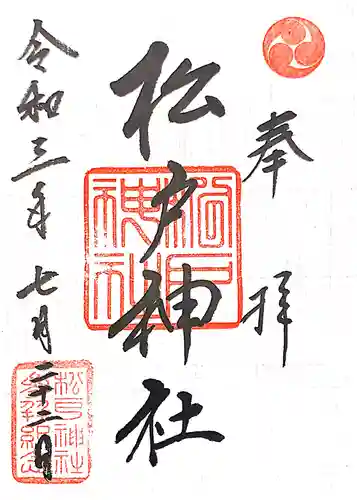 奉拝
松戸神社
令和三年七月二十二日
松戸神社
松戸神社